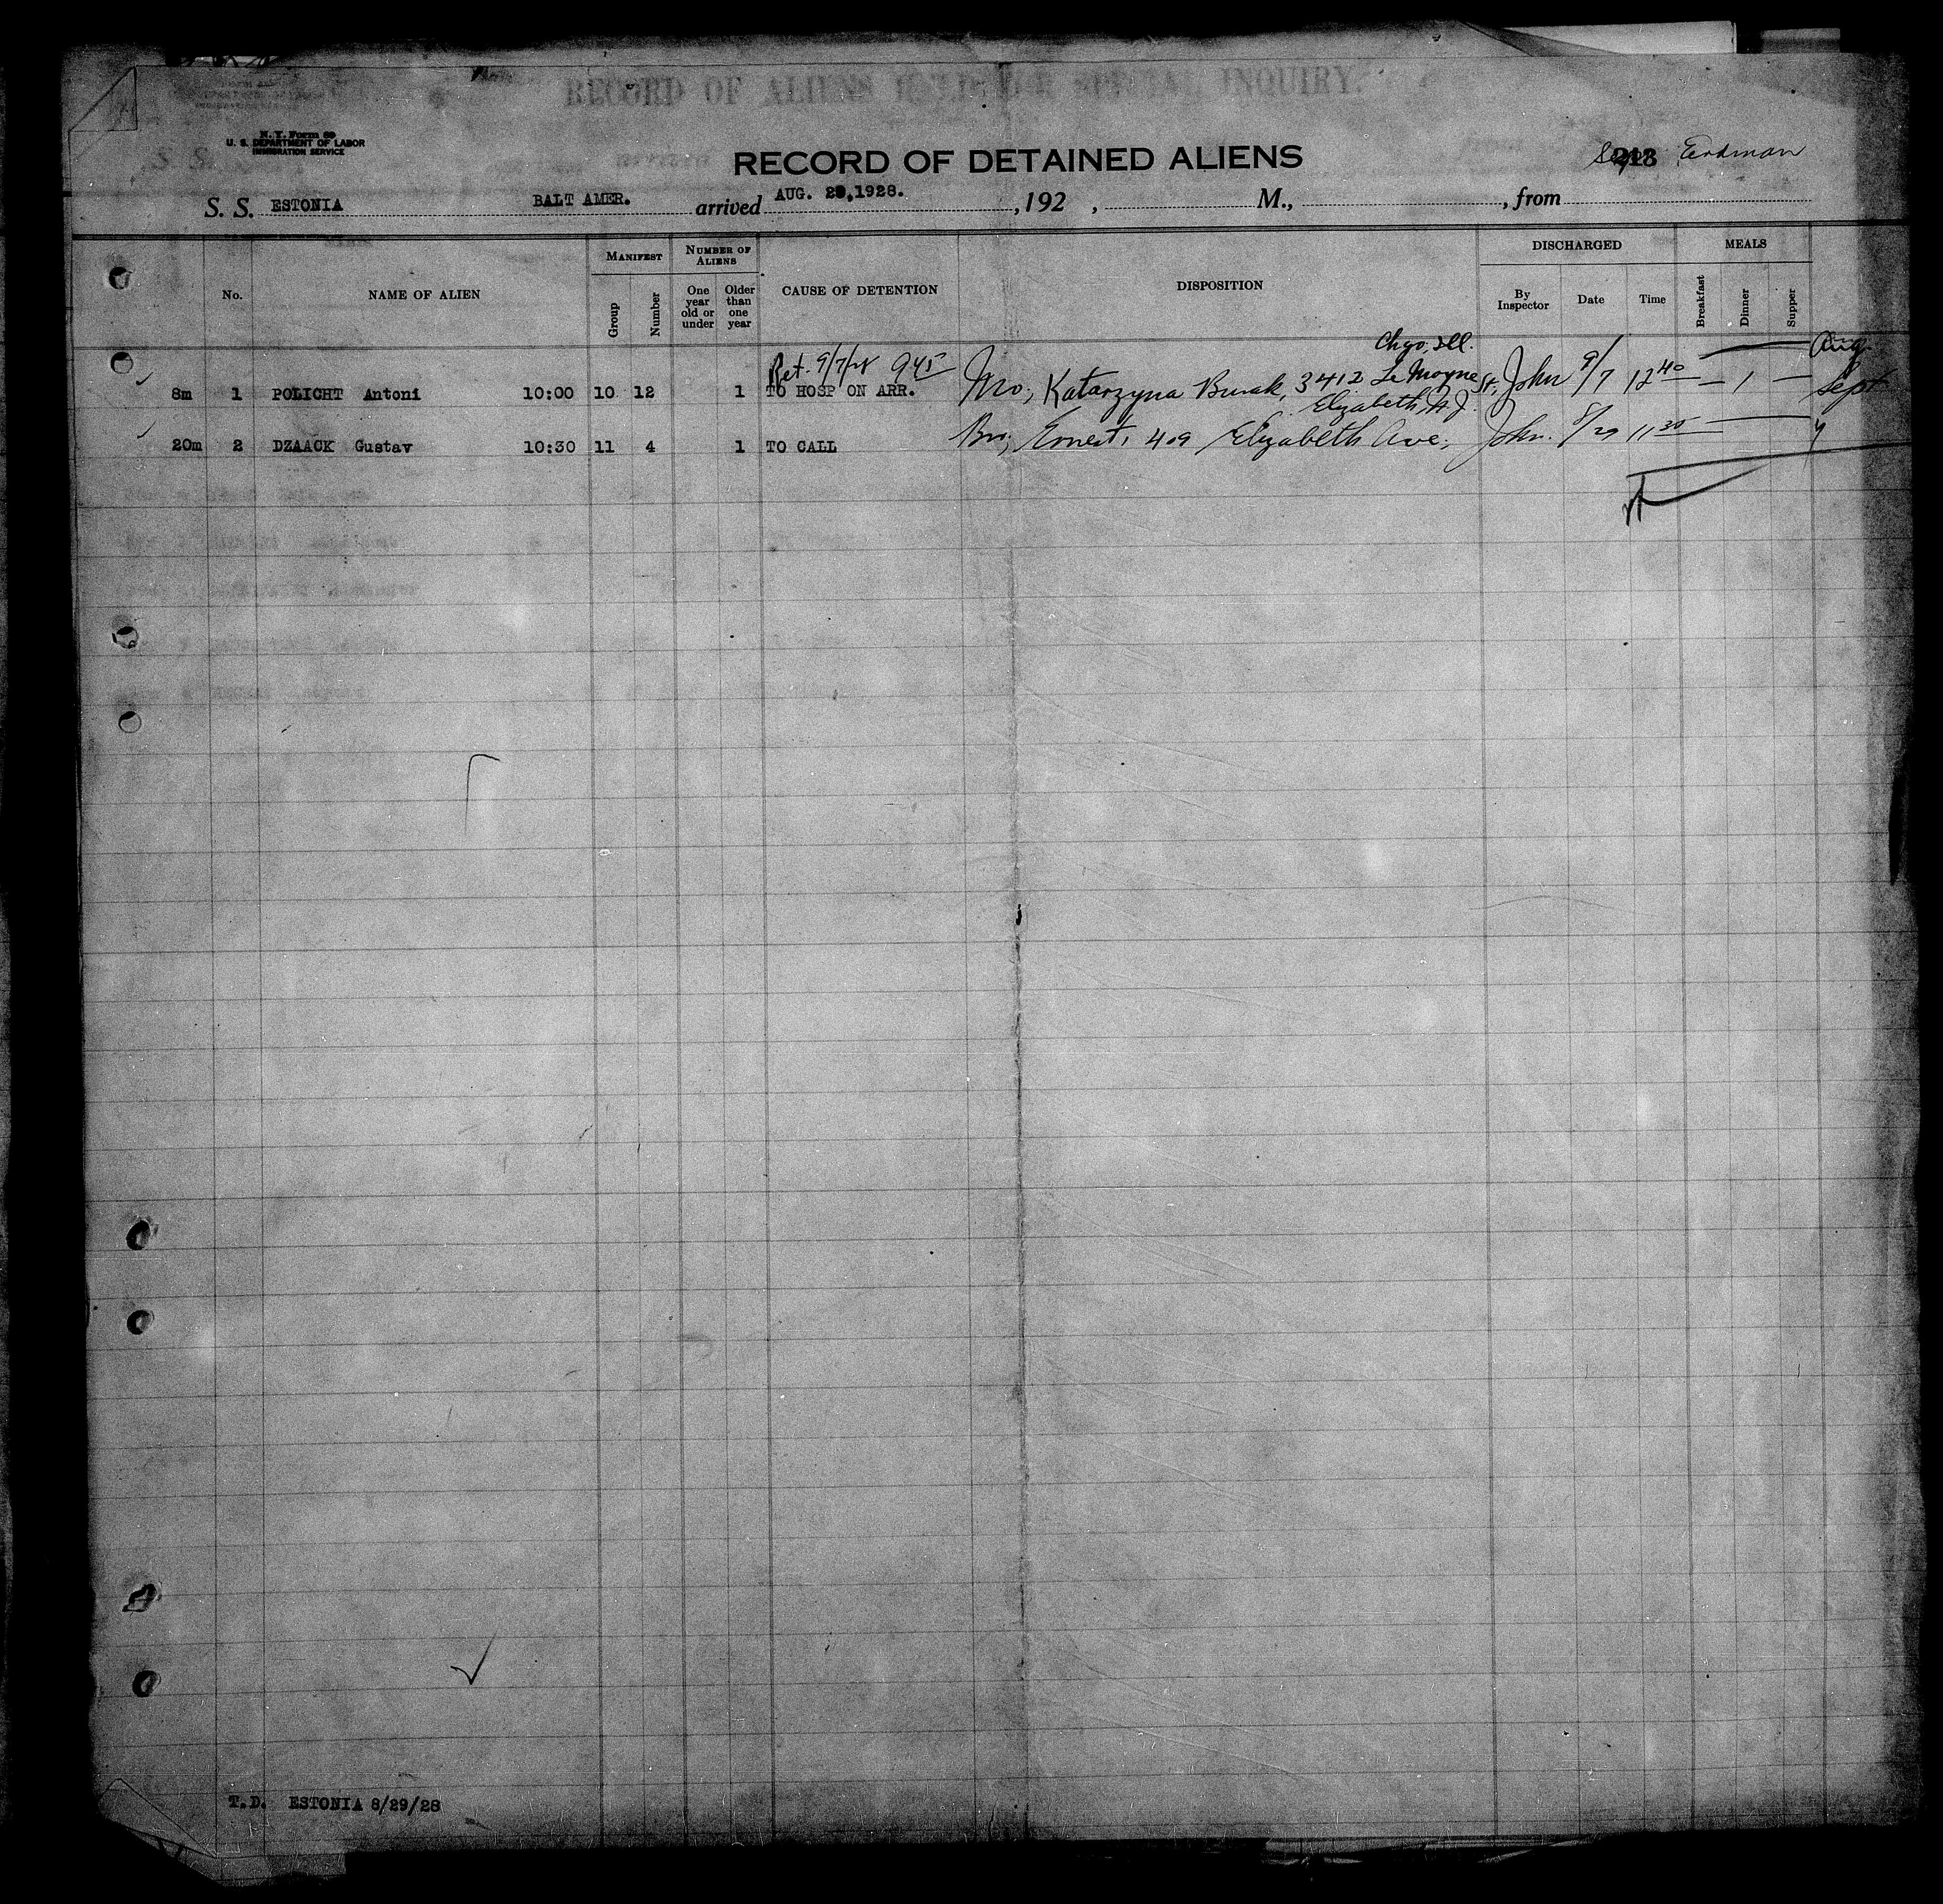 RECORD OF ALIENS HELD FOR SPECIAL INQUIRY.
N. Y. Form 89
U. S. DEPARTMENT OF LABOR
IMMIGRATION SERVICE
RECORD OF DETAINED ALIENS
213 Erdman
S. S. ESTONIA BALT AMER. arrived AUG. 29, 1928. , 192 , M., , from
No. NAME OF ALIEN MANIFEST NUMBER OF ALIENS CAUSE OF DETENTION DISPOSITION DISCHARGED MEALS
Group Number One year old or under Older than one year By Inspector Date Time Breakfast Dinner Supper
Chgo, Ill. Aug.
Ret. 9/7/28 945
8m 1 POLICHT Antoni 10:00 10 12 1 TO HOSP ON ARR. Mo; Katarzyna Burak, 3412 Le Moyne St, John 9/7 12 40 — 1 — Sept
Elizabeth, N.J.
20m 2 DZAACK Gustav 10:30 11 4 1 TO CALL Bro; Ernest, 409 Elizabeth Ave; John. 8/29 11 30
T.D. ESTONIA 8/29/28